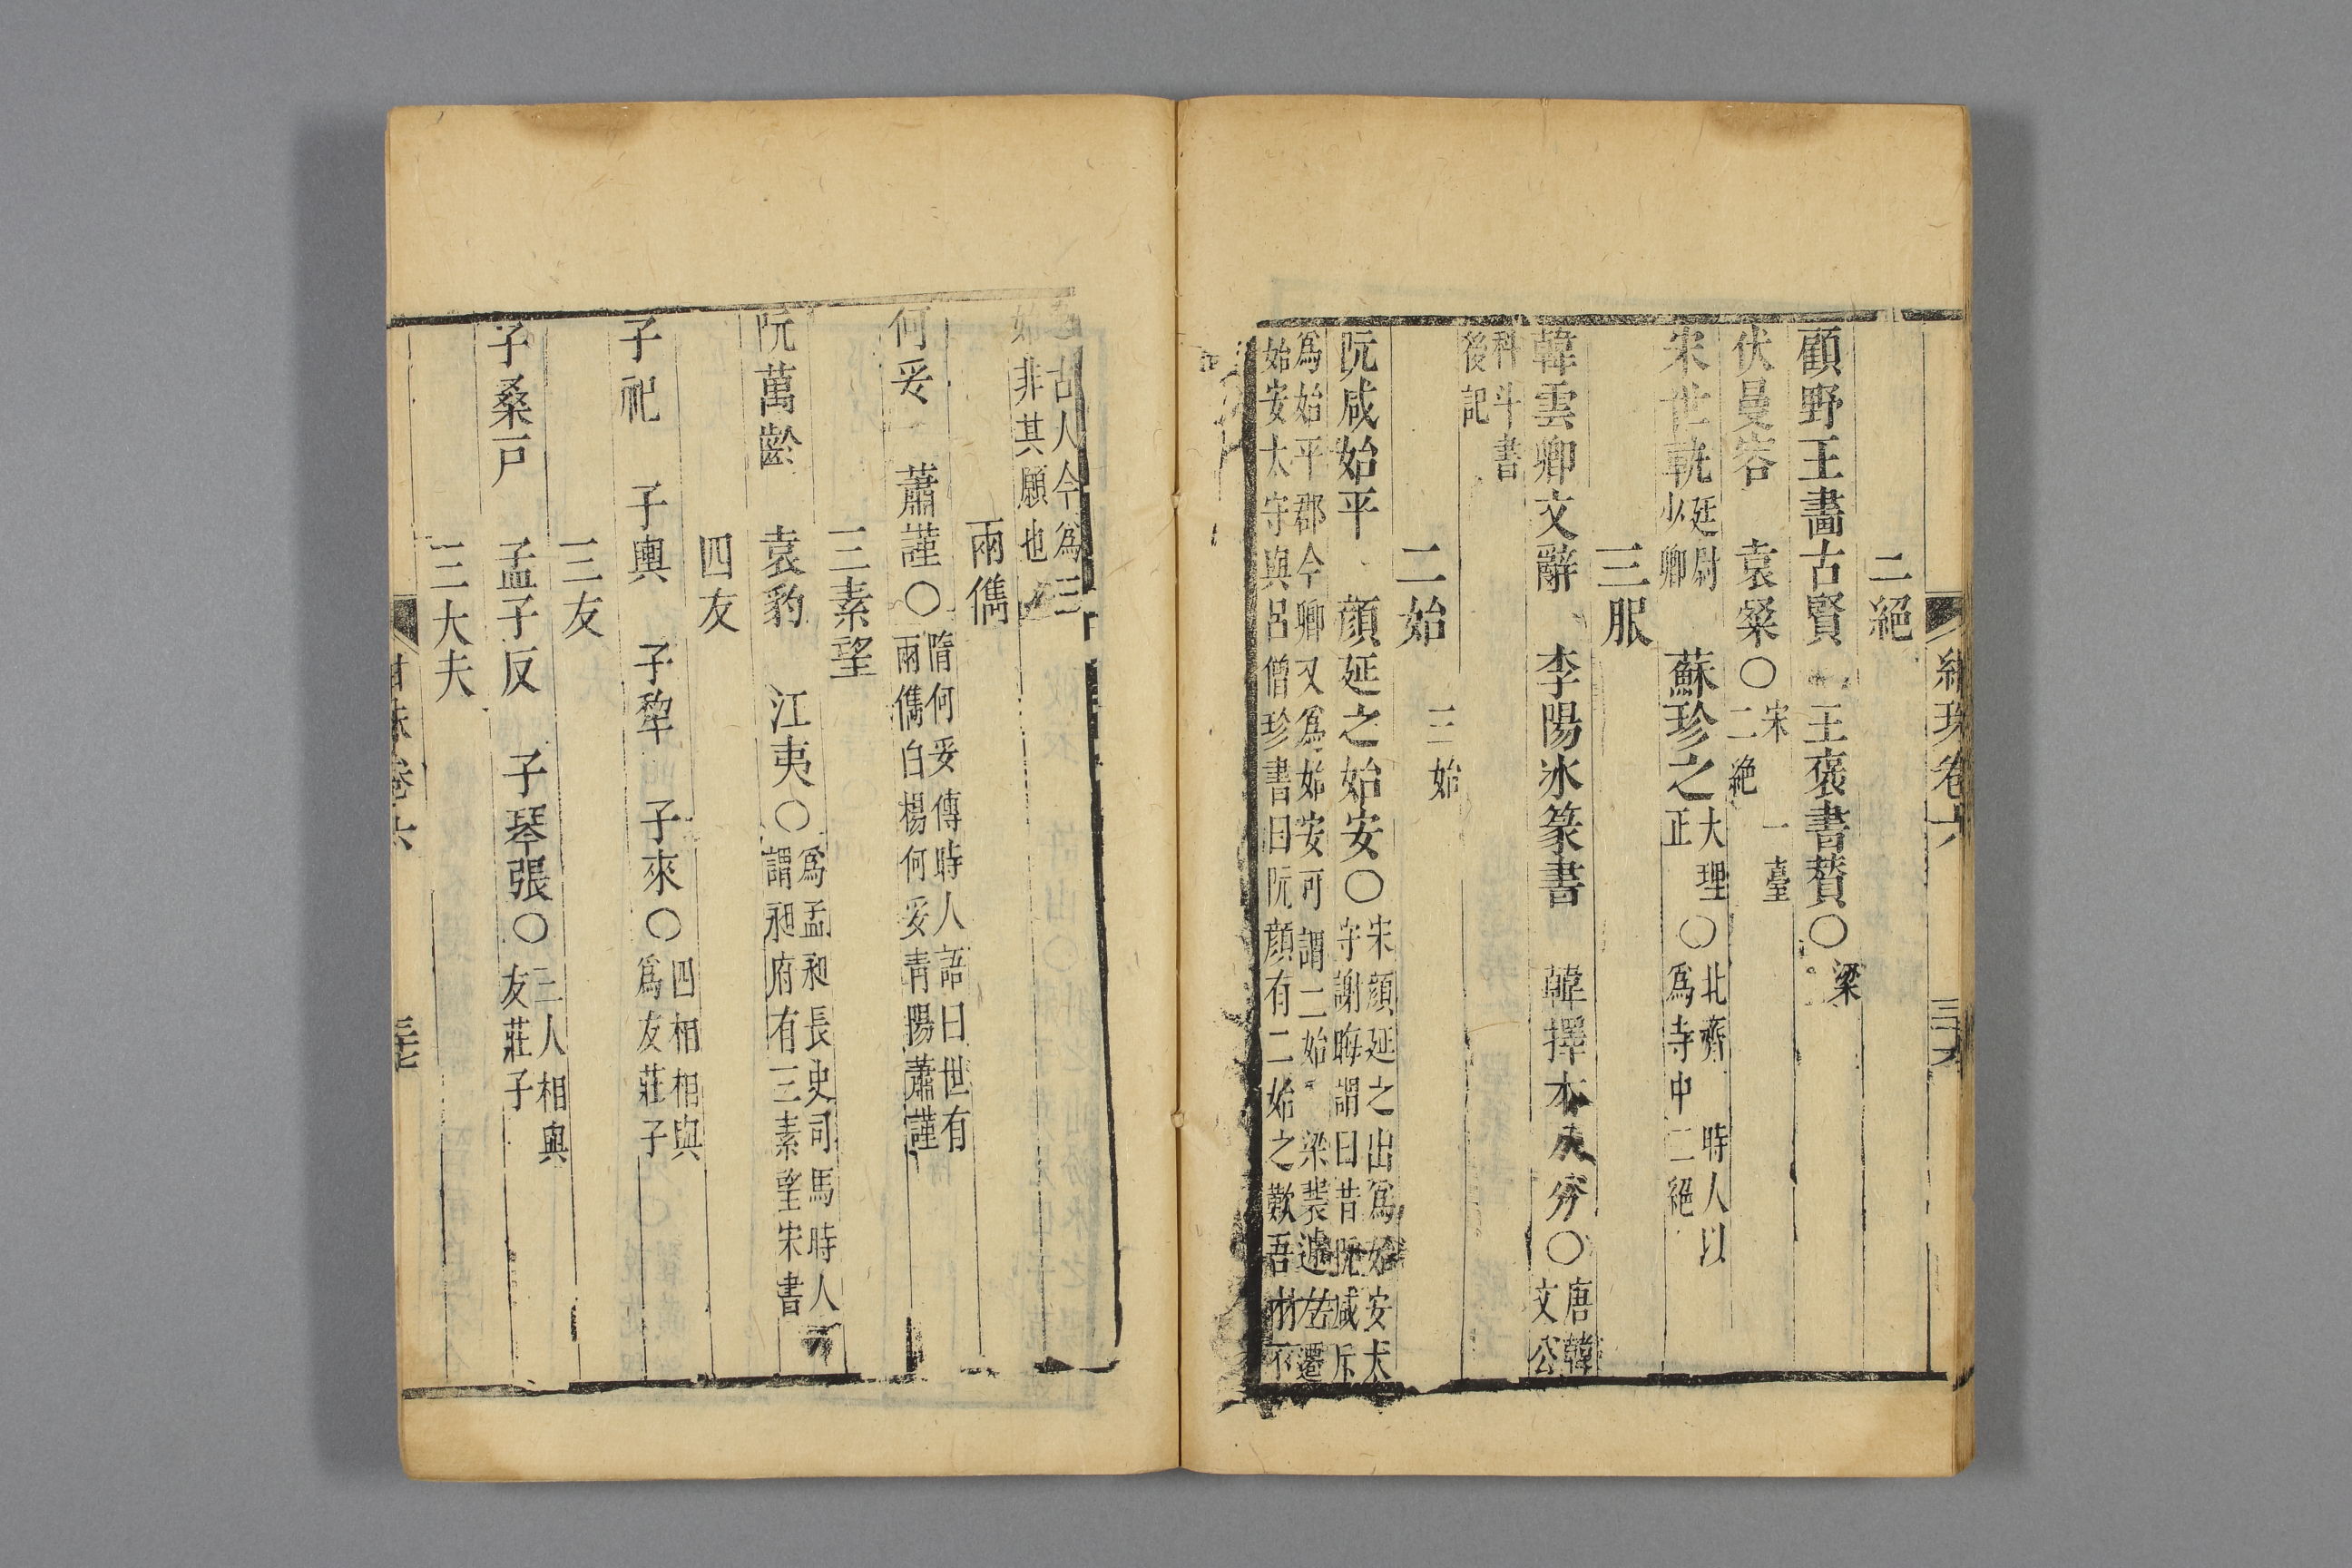 紺珠卷六 三十六
二絕
顧野王畵古賢 王褒書贊○梁
一臺
二絕
伏曼容 袁粲○宋
宋世軌廷尉少卿 蘇珍之大理正○北齊 時人以爲寺中二絕
三服
韓雲卿文辭 李陽冰篆書 韓擇木八分○唐韓文公
科斗書後記
二始 三始
阮咸始平 顔延之始安○宋顔延之出爲始安太守謝晦謂曰昔阮咸斥
爲始平郡今卿又爲始安可謂二始 梁裴邃左遷
始安太守與呂僧珍書曰阮顔有二始之歎吾才不
古人今爲三
始非其願也
兩儁
何妥 蕭䜣○隋何妥傳時人語曰世有兩儁白楊何妥青陽蕭䜣
三素望
阮萬齡 袁豹 江夷○爲孟昶長史司馬時人謂昶府有三素望宋書
四友
子祀 子輿 子犂 子來○四相相與爲友莊子
三友
子桑戶 孟子反 子琴張○三人相與友莊子
三大夫
紺珠卷六 三十七